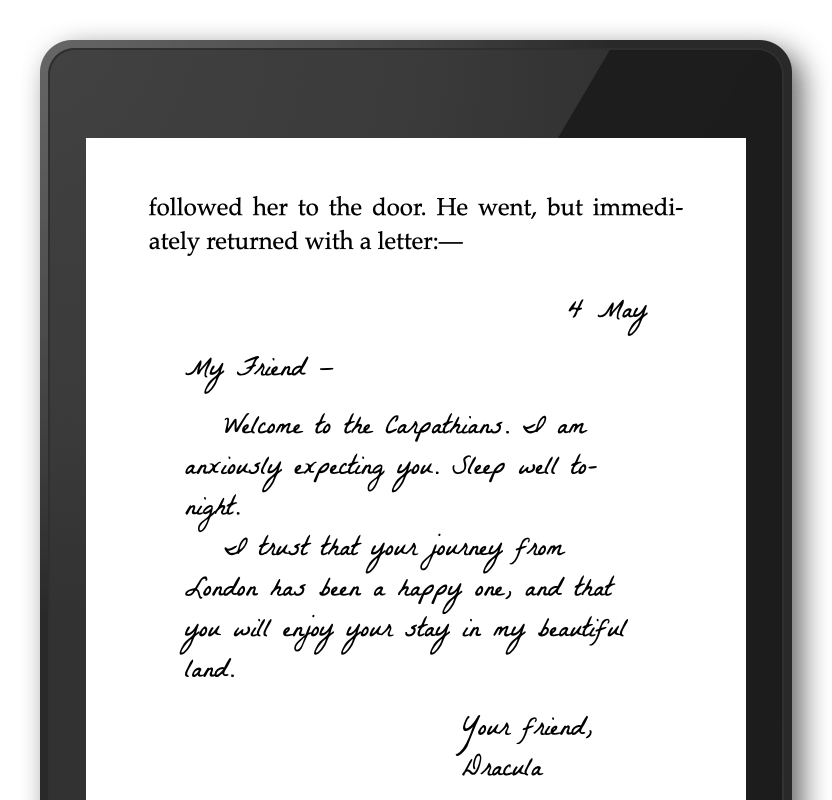 followed her to the door. He went, but immedi-
ately returned with a letter:—
4 May
My Friend —
Welcome to the Carpathians. I am
anxiously expecting you. Sleep well to-
night.
I trust that your journey from
London has been a happy one, and that
you will enjoy your stay in my beautiful
land.
Your friend,
Dracula